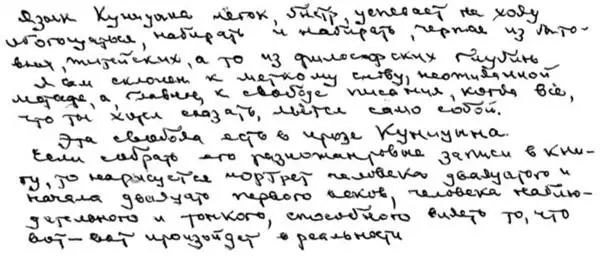 Язык Куницына меток, быстр, успевает на ходу
обогощаться, набирать и набирать, черпая из быто-
вых, житейских, а то из философских глубин
Я сам склонен к меткому слову, неожиданной
метафоре, а, главное, к свободе писания, когда всё,
что ты хочешь сказать, льётся само собой.
Эта свобода есть в прозе Куницына.
Если собрать его разножанровые записи в кни-
гу, то нарисуется портрет человека двадцатого и
начала двадцать первого веков, человека наблю-
дательного и тонкого, способного видеть то, что
вот-вот произойдет в реальности